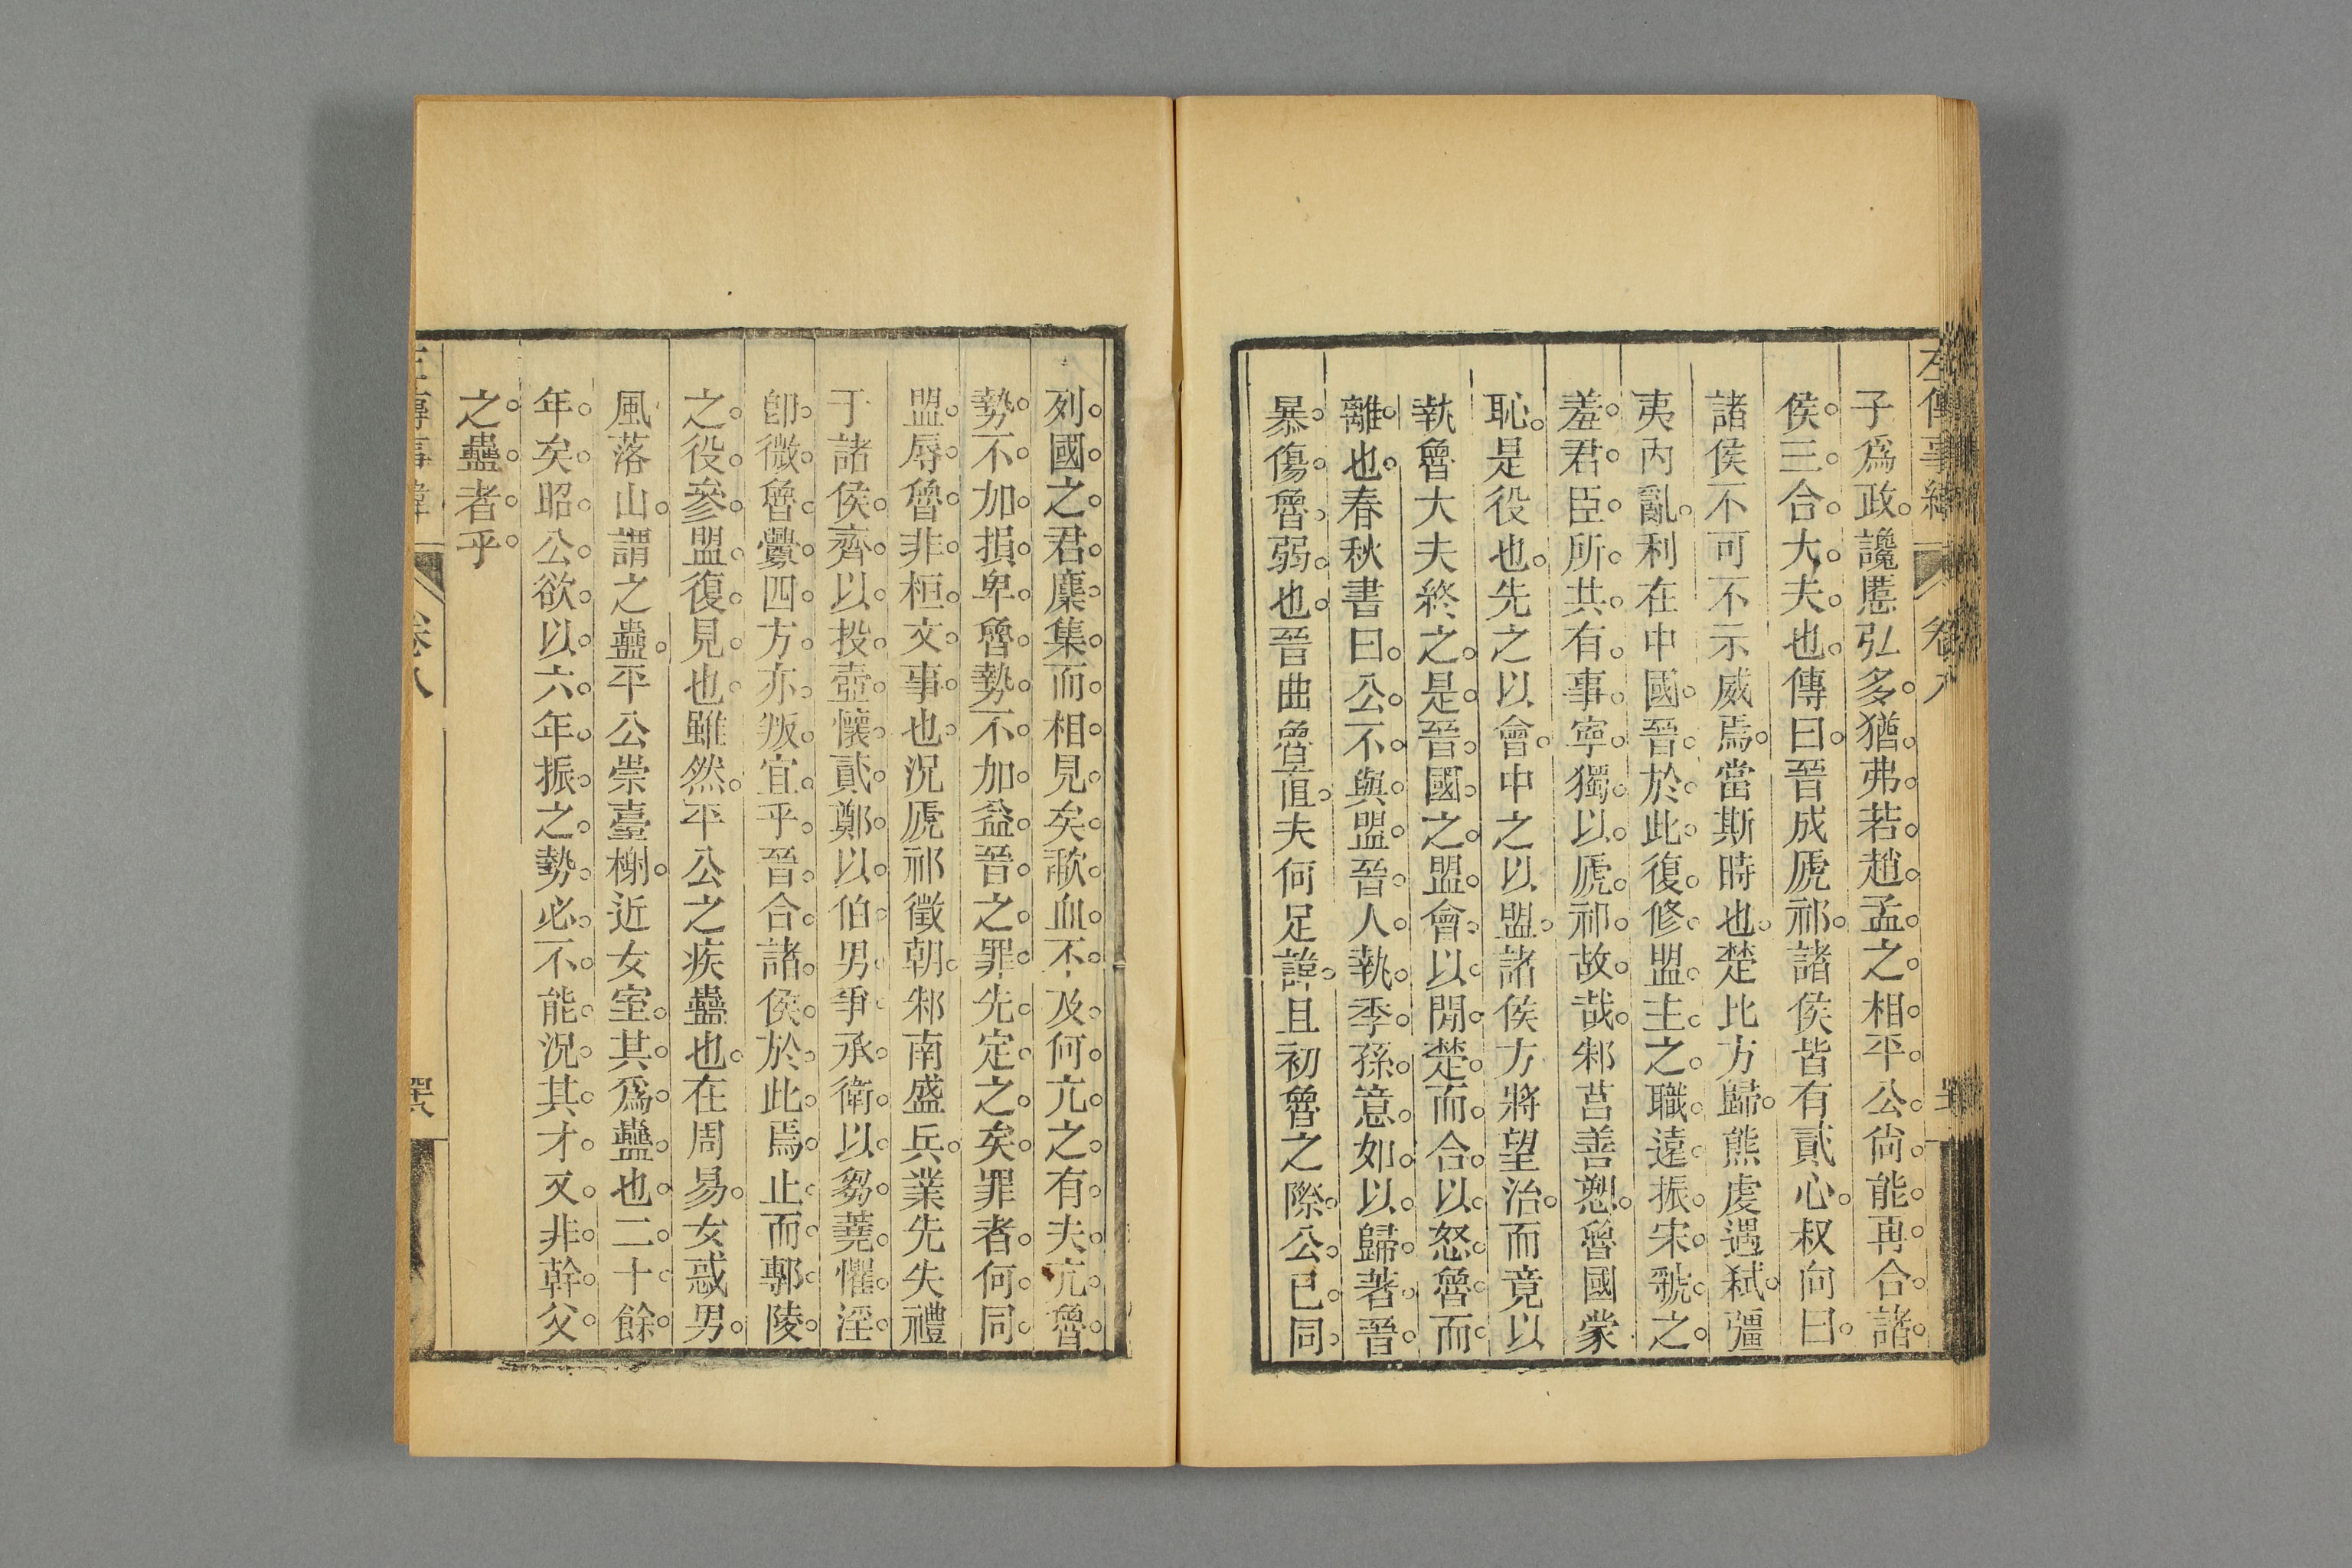 左傳事緯 卷八
子爲政。讒慝弘多。猶。弗。若。趙。孟。之。相。平。公。尚。能。再。合。諸。
侯。三。合。大。夫。也。傳曰。晉成虒祁。諸侯皆有貳心。叔向曰。
諸侯不可不示威焉。當斯時也。楚比方歸。熊虔遇弒。彊
夷內亂。利在中國。晉。於。此。復。修。盟。主。之。職。遠。振。宋。虢。之。
羞。君。臣。所。共。有。事。寧。獨。以。虒。祁。故。哉。邾莒善愬。魯國蒙
恥。是役也。先之以會。中之以盟。諸侯方將望治。而竟以
執魯大夫終之。是。晉。國。之。盟。會。以。閒。楚。而。合。以。怒。魯。而。
離。也。春秋書曰。公。不。與。盟。晉。人。執。季。孫。意。如。以。歸。著。晉。
暴。傷。魯。弱。也。晉曲魯直。夫何足諱。且初魯之際。公。已。同。
列。國。之。君。麇。集。而。相。見。矣。歃。血。不。及。何。亢。之。有。夫。亢。魯。
勢。不。加。損。卑。魯。勢。不。加。益。晉。之。罪。先。定。之。矣。罪者。何。同。
盟。辱。魯。非。桓。文。事。也。況虒祁徵朝。邾南盛兵。業先失禮
于諸侯。齊。以。投。壺。懷。貳。鄭。以。伯。男。爭。承。衛。以。芻。蕘。懼。淫。
卽。微。魯。釁。四。方。亦。叛。宜。乎。晉。合。諸。侯。於。此。焉。止。而。鄟。陵。
之。役。參。盟。復。見。也。雖然。平公之疾蠱也。在周易。女惑男。
風落山。謂之蠱。平公崇臺榭。近女室。其。爲。蠱。也。二。十。餘。
年。矣。昭。公。欲。以。六。年。振。之。勢。必。不。能。況。其。才。又。非。幹。父。
之。蠱。者。乎。
左傳事緯 卷八